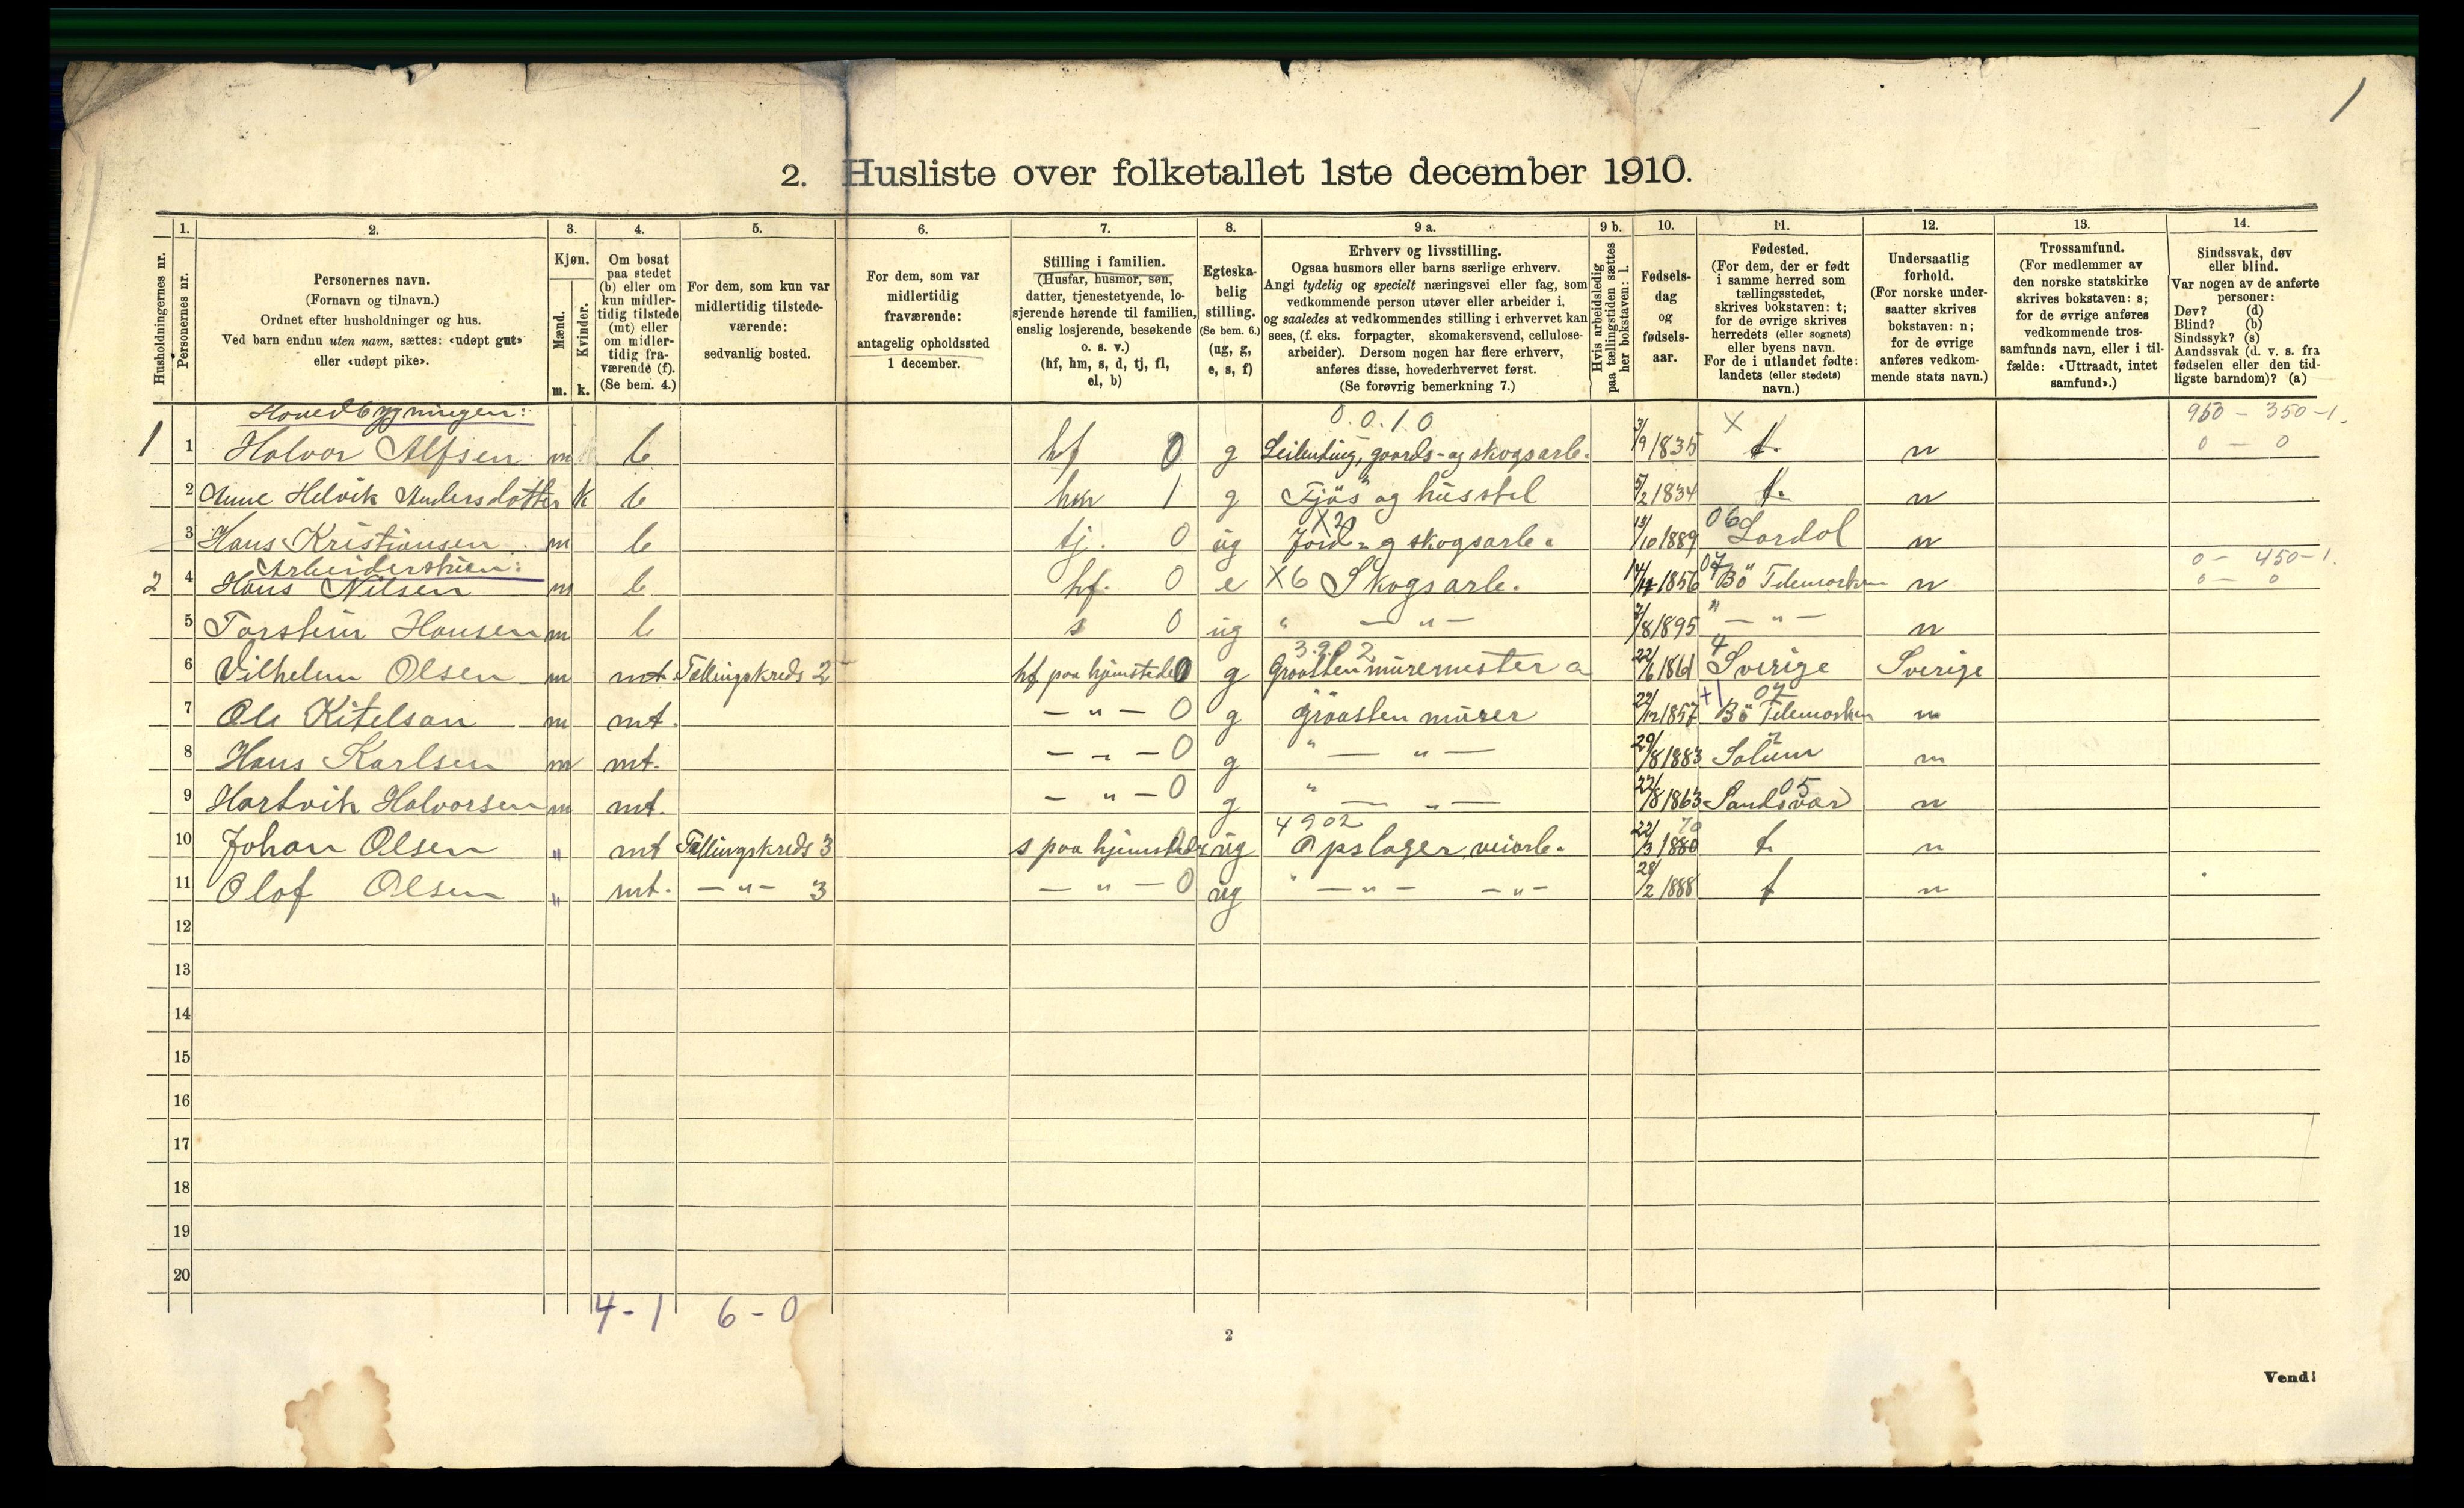 1
2. Husliste over folketallet 1ste december 1910.
1. 2. 3. 4. 5. 6. 7. 8. 9 a. 9 b. 10. 11. 12. 13. 14.
Husholdningernes nr.
Personernes nr.
Personernes navn.
(Fornavn og tilnavn.)
Ordnet efter husholdninger og hus.
Ved barn endnu uten navn, sættes: «udøpt gut»
eller «udøpt pike».
Kjøn.
Mænd.
Kvinder.
m. k.
Om bosat
paa stedet
(b) eller om
kun midler-
tidig tilstede
(mt) eller
om midler-
tidig fra-
værende (f).
(Se bem. 4.)
For dem, som kun var
midlertidig tilstede-
værende:
sedvanlig bosted.
For dem, som var
midlertidig
fraværende:
antagelig opholdssted
1 december.
Stilling i familien.
(Husfar, husmor, søn,
datter, tjenestetyende, lo-
sjerende hørende til familien,
enslig losjerende, besøkende
o. s. v.)
(hf, hm, s, d, tj, fl,
el, b)
Egteska-
belig
stilling.
(Se bem. 6.)
(ug, g,
e, s, f)
Erhverv og livsstilling.
Ogsaa husmors eller barns særlige erhverv.
Angi tydelig og specielt næringsvei eller fag, som
vedkommende person utøver eller arbeider i,
og saaledes at vedkommendes stilling i erhvervet kan
sees, (f. eks. forpagter, skomakersvend, cellulose-
arbeider). Dersom nogen har flere erhverv,
anføres disse, hovederhvervet først.
(Se forøvrig bemerkning 7.)
Hvis arbeidsledig
paa tællingstiden sættes
her bokstaven: l.
Fødsels-
dag
og
fødsels-
aar.
Fødested.
(For dem, der er født
i samme herred som
tællingsstedet,
skrives bokstaven: t;
for de øvrige skrives
herredets (eller sognets)
eller byens navn.
For de i utlandet fødte:
landets (eller stedets)
navn.)
Undersaatlig
forhold.
(For norske under-
saatter skrives
bokstaven: n;
for de øvrige
anføres vedkom-
mende stats navn.)
Trossamfund.
(For medlemmer av
den norske statskirke
skrives bokstaven: s;
for de øvrige anføres
vedkommende tros-
samfunds navn, eller i til-
fælde: «Uttraadt, intet
samfund».)
Sindssvak, døv
eller blind.
Var nogen av de anførte
personer:
Døv? (d)
Blind? (b)
Sindssyk? (s)
Aandssvak (d. v. s. fra
fødselen eller den tid-
ligste barndom)? (a)
Hovedbygningen: 0.0.10 X 950 - 350-1.
1 1 Halvor Alfsen m b hf 0 g Leilending, gaards- og skogsarb. 3/9 1835 t. n 0 - 0
2 Anne Helvik Andersdatter k b hm 1 g Fjös og husstel 5/2 1834 t. n
X2 06
3 Hans Kristiansen m b tj. 0 ug Jord- og skogsarb. 13/10 1889 Lardal n
Arbeiderstuen: 07 0 - 450-1.
2 4 Hans Nilsen m b hf. 0 e X6 Skogsarb. 1856 Bö Telemarken n 0 - 0
5 Torstein Hansen m b s 0 ug " — " — /8 1895 " — " — n
3.902 4
6 Vilhelm Olsen m mt. Tællingskreds 2 hf paa hjemstedet 0 g Graastensmuremester a 22/6 1861 Sverige Sverige
+1 07
7 Ole Kitelsen m mt. — " — 0 g graasten murer 22/12 1857 Bö Telemarken n
8 Hans Karlsen m mt. — " — 0 g " — " — 29/8 1883 Solum n
05
9 Hartvik Halvorsen m mt. — " — 0 g " — " — 22/8 1863 Sandsvær n
4902 70
10 Johan Olsen " mt Tællingskreds 3 s paa hjemstedet ug Opslager, veiarb. 22/3 1880 t. n
11 Olaf Olsen " mt. — " — 3 — " — 0 ug " — " — — " — 28/2 1888 t n
12
13
14
15
16
17
18
19
20
4-1 6-0
2
Vend!